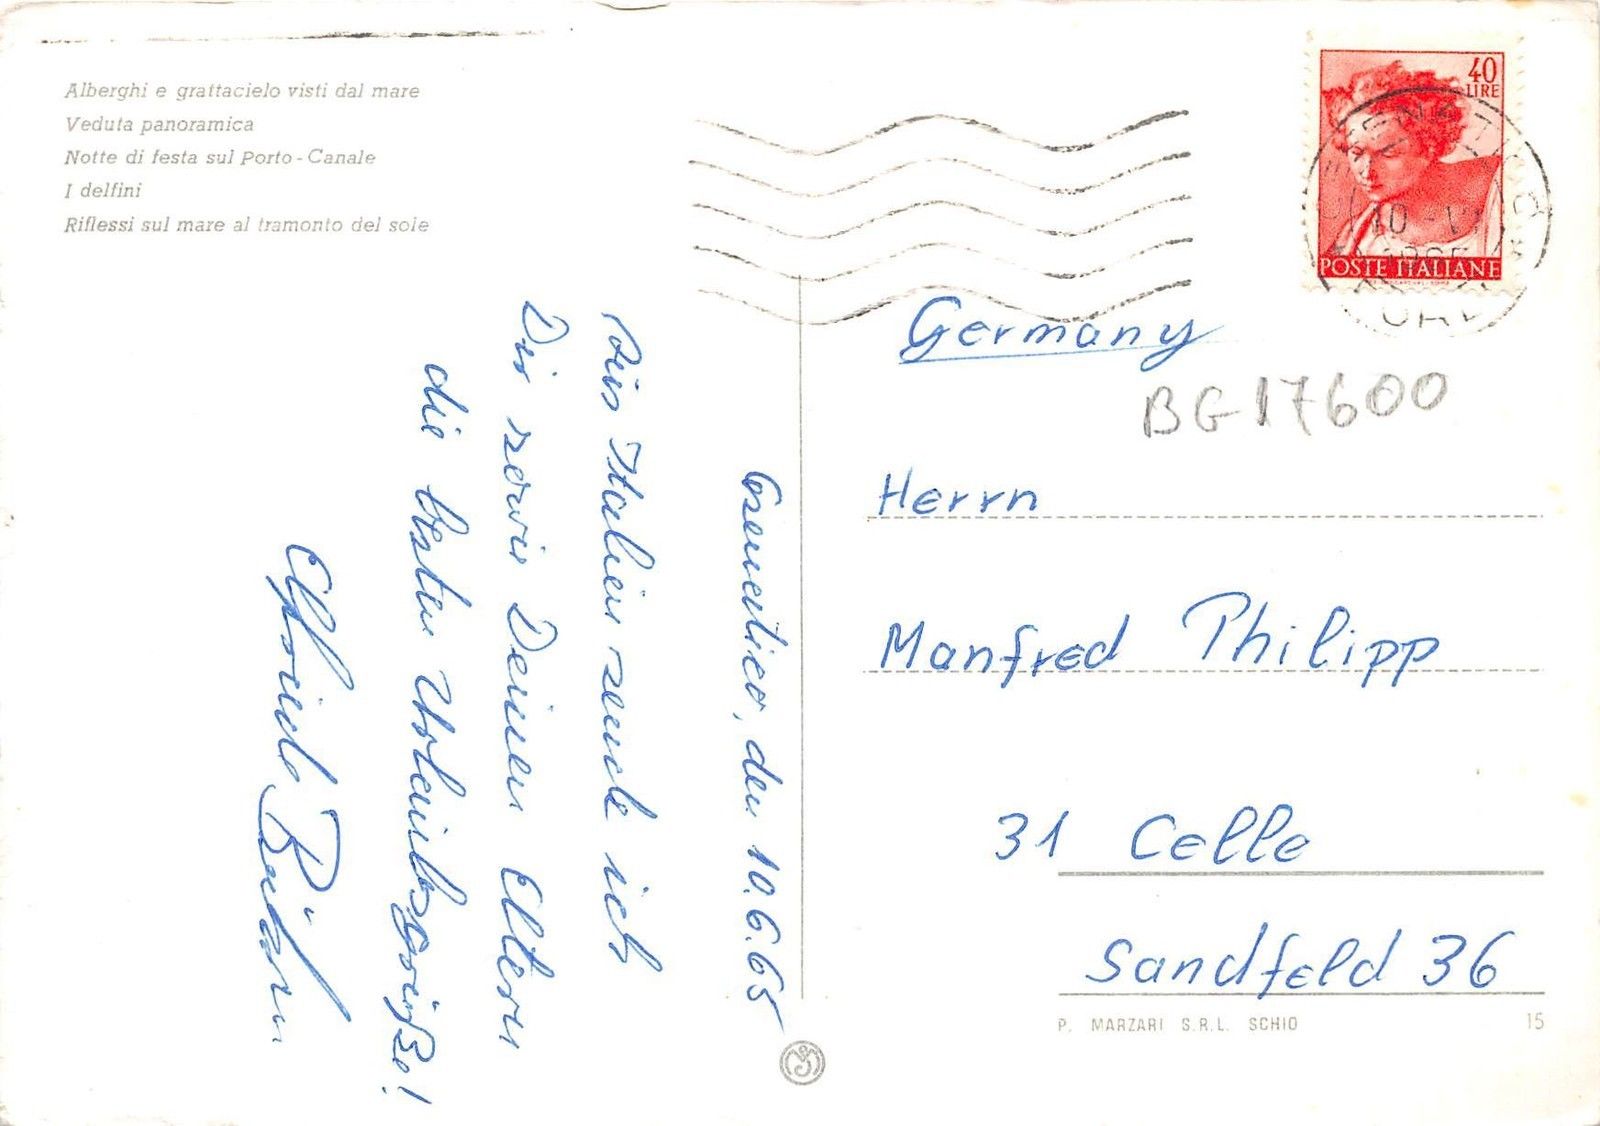 Alberghi e grattacielo visti dal mare
Veduta panoramica
Notte di festa sul Porto-Canale
I delfini
Riflessi sul mare al tramonto del sole
40
LIRE
POSTE ITALIANE
Germany
BG17600
Herrn
Manfred Philipp
31 Celle
Sandfeld 36
P. MARZARI S.R.L. SCHIO
15
den 10.6.65
Aus Italien sende ich
Dir sowie Deinen Eltern
die besten Urlaubsgrüße!